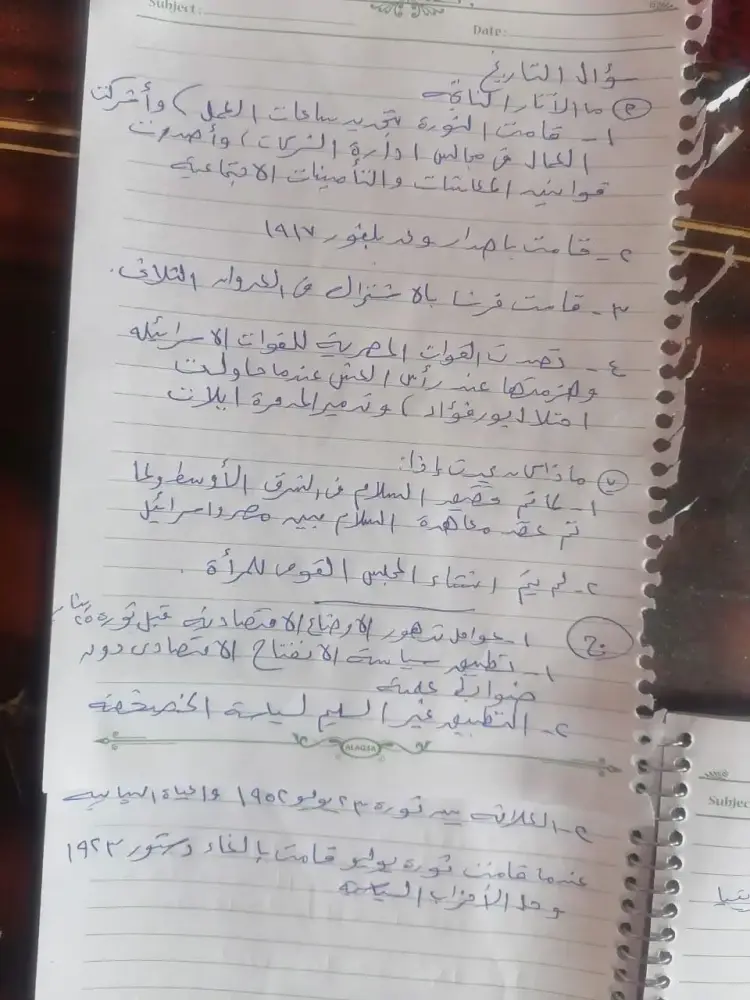 Subject:
Date:
سؤال التاريخ
م ما الآثار الناتجة
١- قامت الثورة بتحديد ساعات العمل) وأشركت
العمال فى مجالس ادارة الشركات) وأصدرت
قوانين المعاشات والتأمينات الاجتماعية
٢- قامت باصدار وعد بلفور ١٩١٧
٣- قامت فرنسا بالاشتراك فى العدوان الثلاثى.
٤- تصدت القوات المصرية للقوات الاسرائيلية
وهزمتها عند رأس العش عندما حاولت
احتلال بور فؤاد) وتدمير المدمرة ايلات
ماذا يحدث إذا:
١- لما تم تحقيق السلام فى الشرق الأوسط ولما
تم عقد معاهدة السلام بين مصر واسرائيل
٢- لم يتم انشاء المجلس القومى للمرأة.
ج ١- عوامل تدهور الاوضاع الاقتصادية قبل ثورة ٢٥ يناير
١- تطبيق سياسة الانفتاح الاقتصادى دون
ضوابط علمية
٢- التطبيق غير السليم لسياسة الخصخصة
ALAQSA
٢- العلاقة بين ثورة ٢٣ يوليو ١٩٥٢ والحياة النيابية
عندما قامت ثورة يوليو قامت بإلغاء دستور ١٩٢٣
وحل الأحزاب السياسية
Subjec